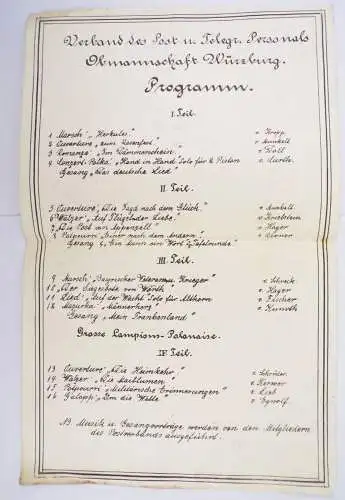 Verband des Post u. Telegr. Personals
Obmannschaft Würzburg.
Programm.
I Teil.
1 Marsch „Herkules" v
2 Ouverture „zum v Kunkell
3 Romanze „Im Dämmerschein" v
4 Konzert-Polka „Hand in Hand Solo für 2 Piston v
Gesang „Das deutsche Lied"
II. Teil.
5 Ouverture „Die Jagd nach dem Glück." v
6 Walzer „Auf Flügeln der Liebe" v
7 „Die Post von Appenzell" v Hager
8 Potpourri „Einer nach dem Andern" v Körner
Gesang
III. Teil.
9 Marsch „Bayrischer Veteranen u. Krieger" v Schreck
10 „Der Siegesbote von Wörth" v Hager
11 Lied „Auf der Wacht Solo für Althorn v Fischer
12 Mazurka „Männerherz" v Kunoth
Gesang „Mein Frankenland"
Grosse Lampions-Polonaise.
IV Teil.
13 Ouverture „Die Heimkehr" v Schröder
14 Walzer „Die v
15 Potpourri „Militärische Erinnerungen" v
16 Galopp „Um die Wette" v
NB Musik u. Gesangvorträge werden von den Mitgliedern
des Postverbands ausgeführt.